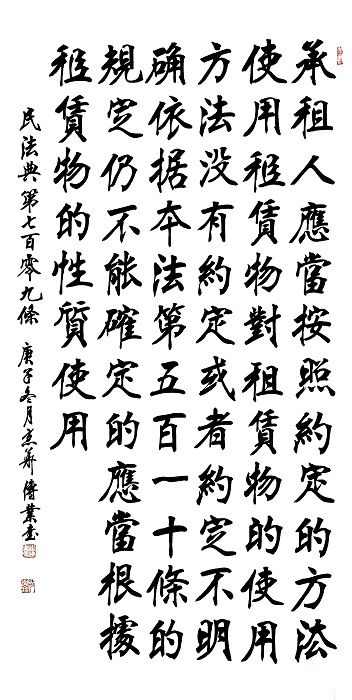 承租人應當按照約定的方法
使用租賃物對租賃物的使用
方法没有約定或者約定不明
确依据本法第五百一十條的
規定仍不能確定的應當根據
租賃物的性質使用
民法典第七百零九條 庚子冬月京華傳業書